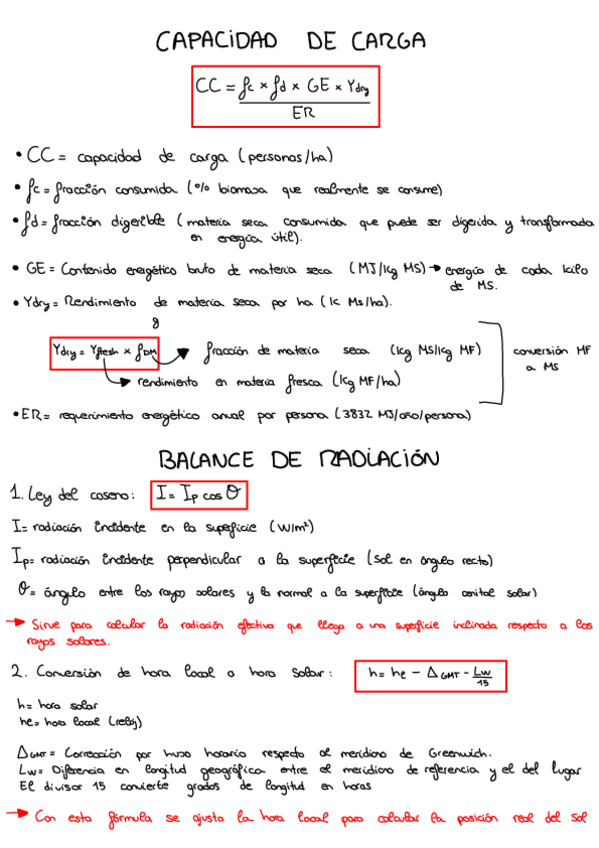 CAPACIDAD DE CARGA
CC = fc × fd × GE × Ydry
ER
• CC = capacidad de carga (personas/ha)
• fc = fracción consumida (% biomasa que realmente se consume)
• fd = fracción digerible (materia seca consumida que puede ser digerida y transformada
en energía útil).
• GE = Contenido energético bruto de materia seca (MJ/kg MS) → energía de cada kilo
de MS.
• Ydry = Rendimiento de materia seca por ha (k Ms/ha).
8
Ydry = Yfresh × fDM → fracción de materia seca (kg MS/kg MF) conversión MF
a MS
→ rendimiento en materia fresca (kg MF/ha)
• ER = requerimiento energético anual por persona (3832 MJ/año/persona)
BALANCE DE RADIACIÓN
1. Ley del coseno: I = Ip cos θ
I = radiación incidente en la superficie (W/m²)
Ip = radiación incidente perpendicular a la superficie (sol en ángulo recto)
θ = ángulo entre los rayos solares y la normal a la superficie (ángulo cenital solar)
→ Sirve para calcular la radiación efectiva que llega a una superficie inclinada respecto a los
rayos solares.
2. Conversión de hora local a hora solar: h = he − ΔGMT − Lw/15
h = hora solar
he = hora local (reloj)
ΔGMT = Corrección por huso horario respecto al meridiano de Greenwich.
Lw = Diferencia en longitud geográfica entre el meridiano de referencia y el del lugar
El divisor 15 convierte grados de longitud en horas
→ Con esta fórmula se ajusta la hora local para calcular la posición real del sol